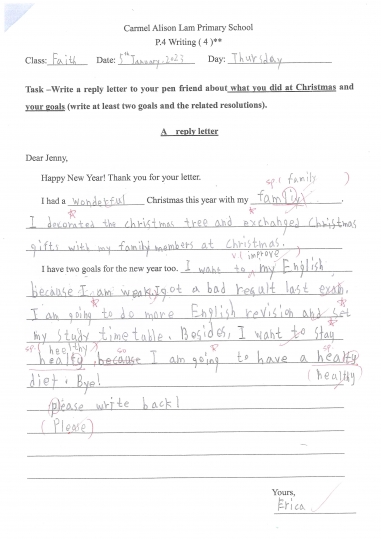 Carmel Alison Lam Primary School
P.4 Writing ( 4 )**
Class: Faith Date: 5th January, 2023 Day: Thursday
Task –Write a reply letter to your pen friend about what you did at Christmas and
your goals (write at least two goals and the related resolutions).
A reply letter
Dear Jenny,
Happy New Year! Thank you for your letter.
sp ( family )
I had a wonderful Christmas this year with my
I decorated the christmas tree and exchanged Christmas
gifts with my family members at Christmas.
improve
I have two goals for the new year too. I want to my English
because I am weak, I got a bad result last exam.
I am going to do more English revision and set
my study timetable. Besides, I want to stay
sp ( healthy ) so sp
healty , because I am going to have a healty
diet. Bye! (healthy
please write back!
( Please )
Yours,
Erica